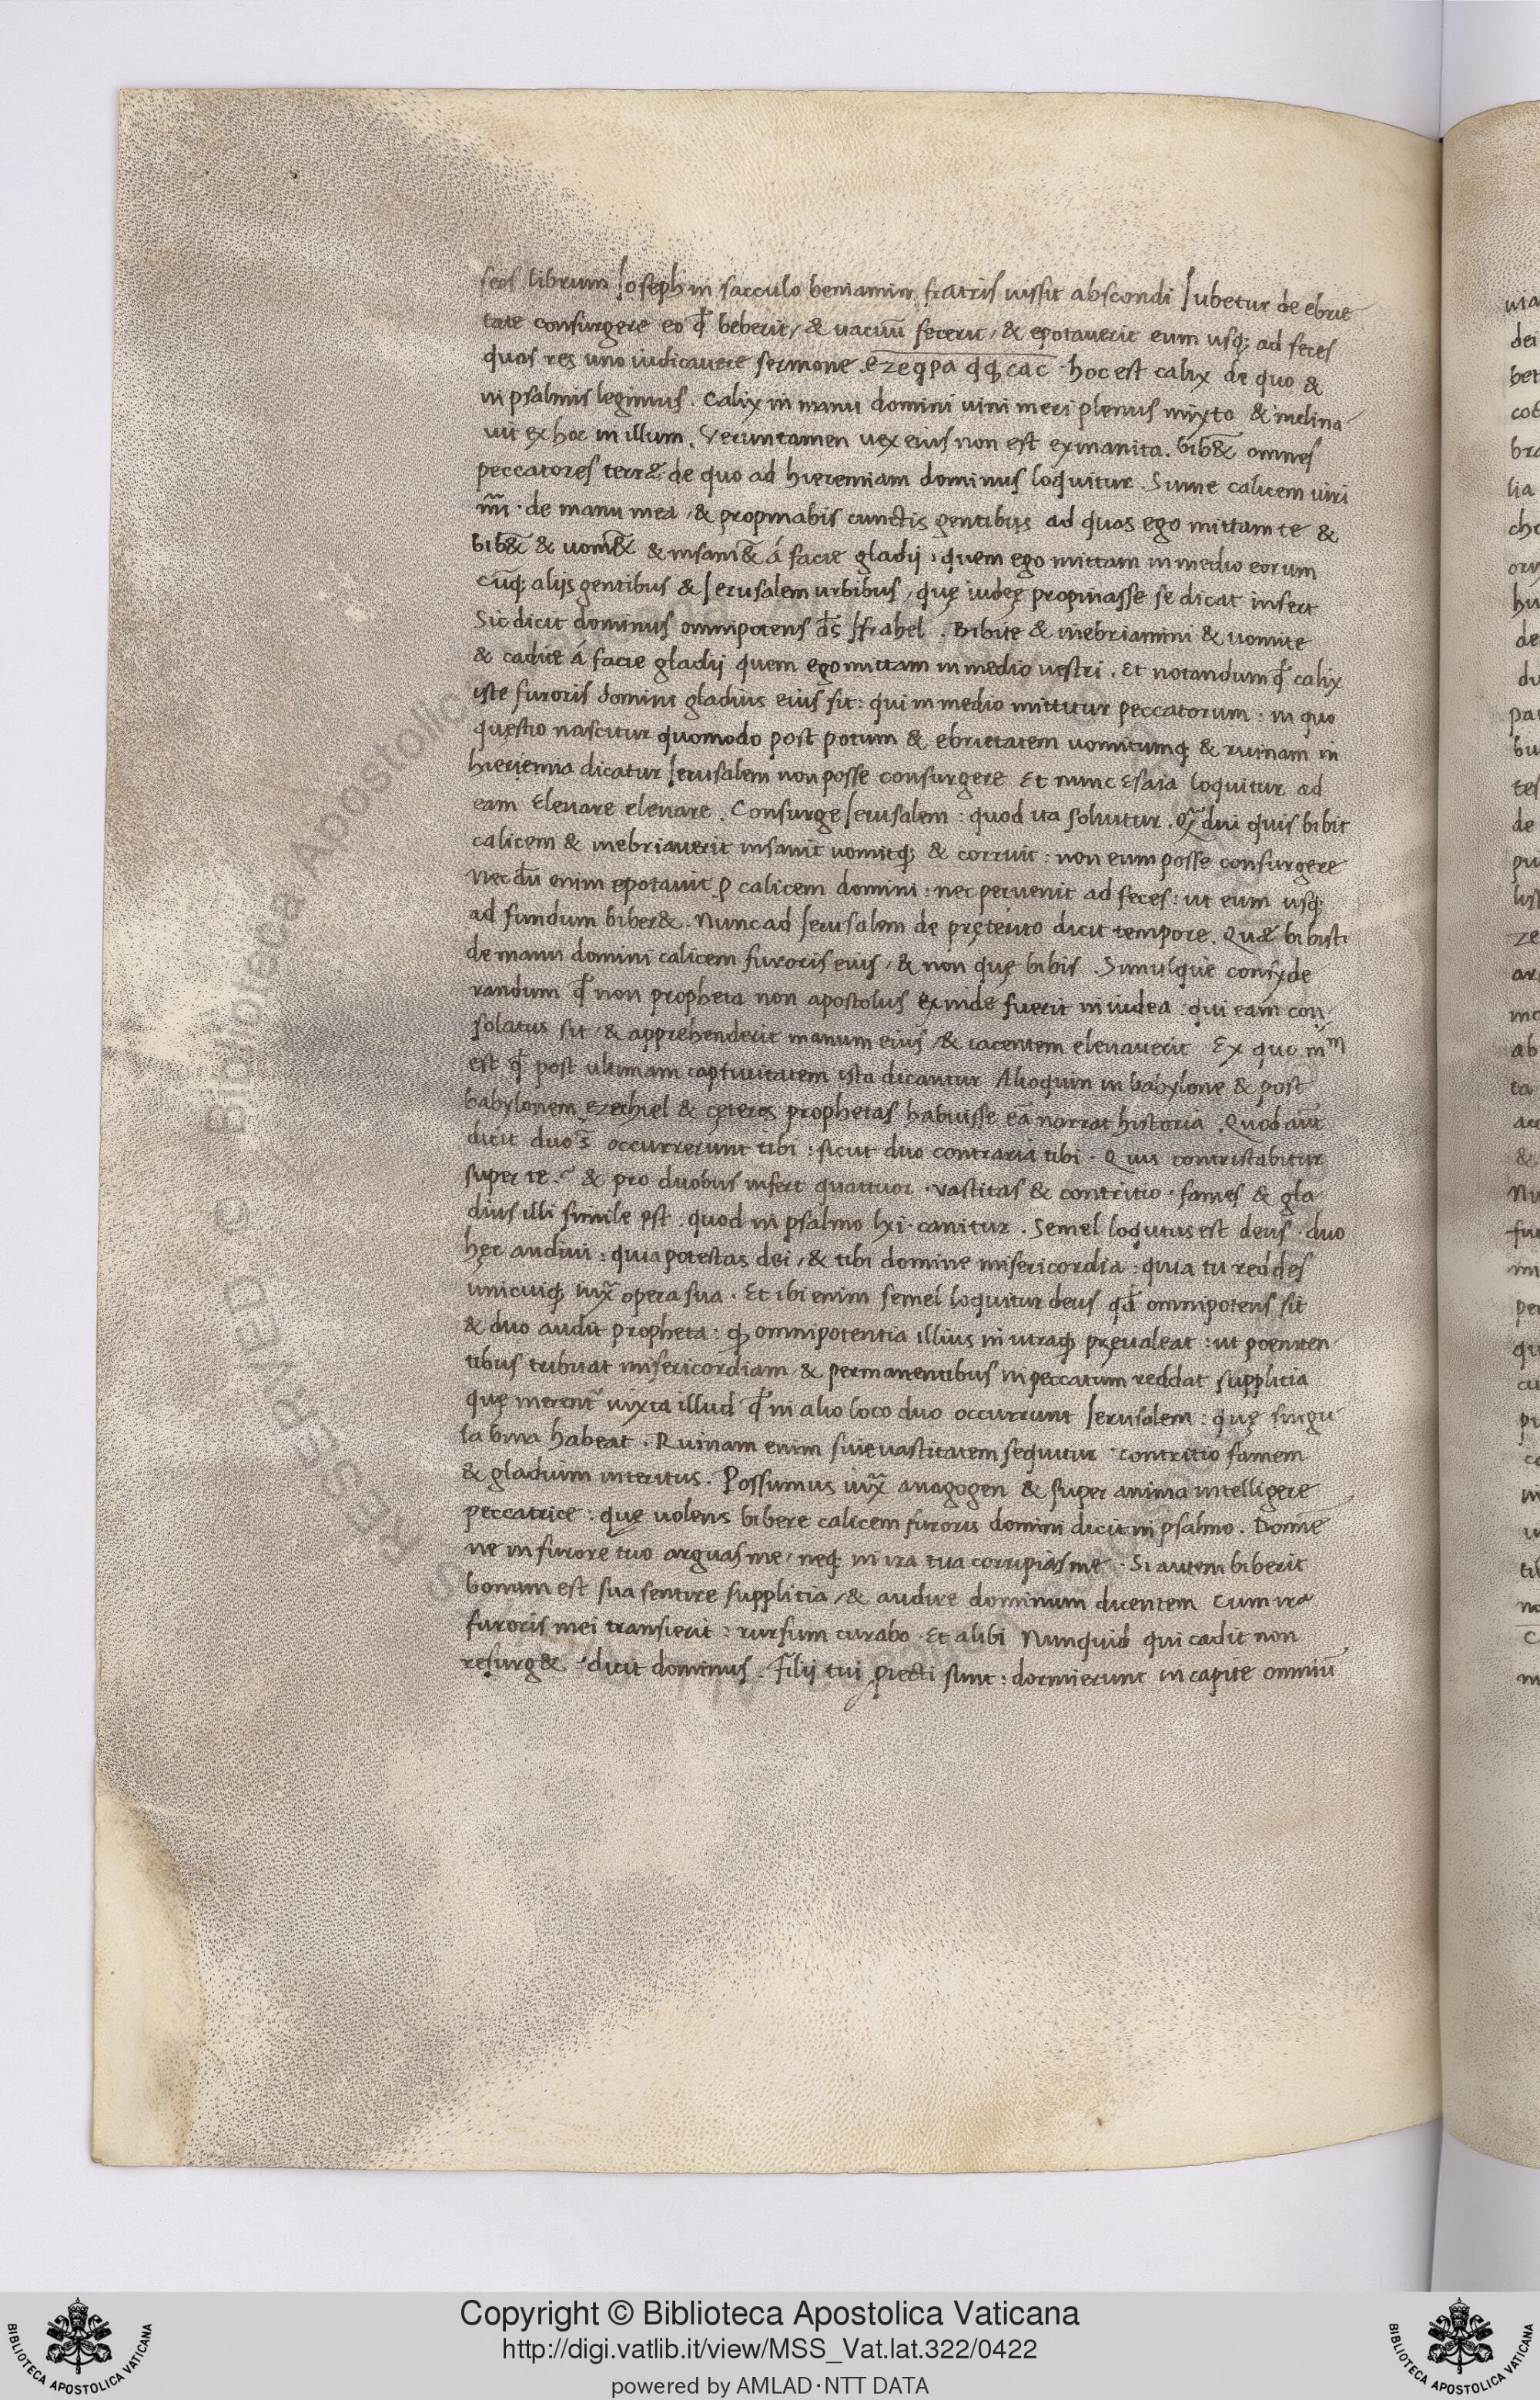 seos librum Ioseph in sacculo beniamin fratris iussit abscondi Iubetur de ebrie
tate consurgere eo qđ beberit, & uacuū fecerit, & epotauerit eum usq; ad feces
quas res uno iudicauere sermone. ezeqpa qq cac · hoc est calix de quo &
in psalmis legimus. Calix in manu domini uini meri plenus mixto & inclina
uit ex hoc in illum. Veruntamen uex eius non est exinanita. bib&̄ omnes
peccatores terrae de quo ad hieremiam dominus loquitur. Sume calicem uini
m̄i · de manu mea, & propinabis cunctis gentibus ad quas ego mittam te &
bib&̄ & uom&̄ & insani&̄ á facie gladij : quem ego mittam in medio eorum
cūq; alijs gentibus & Ierusalem urbibus, quę iudeę propinasse se dicat infert
Sic dicit dominus omnipotens d̄s Israhel. Bibite & inebriamini & uomite
& cadite á facie gladij quem ego mittam in medio uestri. Et notandum qđ calix
iste furoris domini gladius eius sit : qui in medio mittitur peccatorum : in quo
questio nascitur quomodo post potum & ebrietatem uomitumq; & ruinam in
hieremia dicatur Ierusalem non posse consurgere Et nunc Esaia loquitur ad
eam Eleuare eleuare. Consurge Ierusalem : quod ita soluitur. dni quis bibit
calicem & inebriauerit insanit uomitq; & corruit : non eum posse consurgere
nec dū enim epotauit ꝑ calicem domini : nec peruenit ad feces : ut eum usq;
ad fundum biber&. Nunc ad Ierusalem de pręterito dicit tempore. Quae bibisti
de manu domini calicem furoris eius, & non quę bibis. Simulque consyde
randum qđ non propheta non apostolus exinde fuerit in iudea qui eam con
solatus sit & apprehenderit manum eius, & iacentem eleuauerit Ex quo
est qđ post ultimam captiuitatem ista dicantur Alioquin in babylone & post
babylonem ezechiel & cęteros prophetas habuisse eā narrat historia. Quod aūt
dicit duo s̄ occurrerunt tibi : sicut duo contraria tibi. Quis contristabitur
super te? & pro duobus infert quattuor · vastitas & contritio · fames & gla
dius illi simile est : quod in psalmo lxi · canitur. Semel loqutus est deus · duo
hęc audiui : quia potestas dei, & tibi domine misericordia : quia tu reddes
unicuiq; iux̄ opera sua. Et ibi enim semel loquitur deus qđ omnipotens sit
& duo audit propheta : q; omnipotentia illius in utraq; pręualeat : ut poeniten
tibus tribuat misericordiam & permanentibus in peccatum reddat supplicia
quę merent̃ iuxta illud qđ in alio loco duo occurrunt Ierusalem : quę singu
la bina habeat. Ruinam enim siue uastitatem sequitur contritio famem
& gladium interitus. Possumus iux̄ anagogen & super anima intelligere
peccatrice : quę uolens bibere calicem furoris domini dicit in psalmo. Domīe
ne in furore tuo arguas me, neq; in ira tua corripias me. Si autem biberit
bonum est sua sentire supplicia, & audire dominum dicentem Cum ira
furoris mei transierit : rursum curabo. Et alibi Nunquid qui cadit non
resurg& dicit dominus. Filij tui ꝓiecti sunt : dormierunt in capite omniū
Copyright © Biblioteca Apostolica Vaticana
http://digi.vatlib.it/view/MSS_Vat.lat.322/0422
powered by AMLAD·NTT DATA
BIBLIOTECA APOSTOLICA VATICANA
BIBLIOTECA APOSTOLICA VATICANA